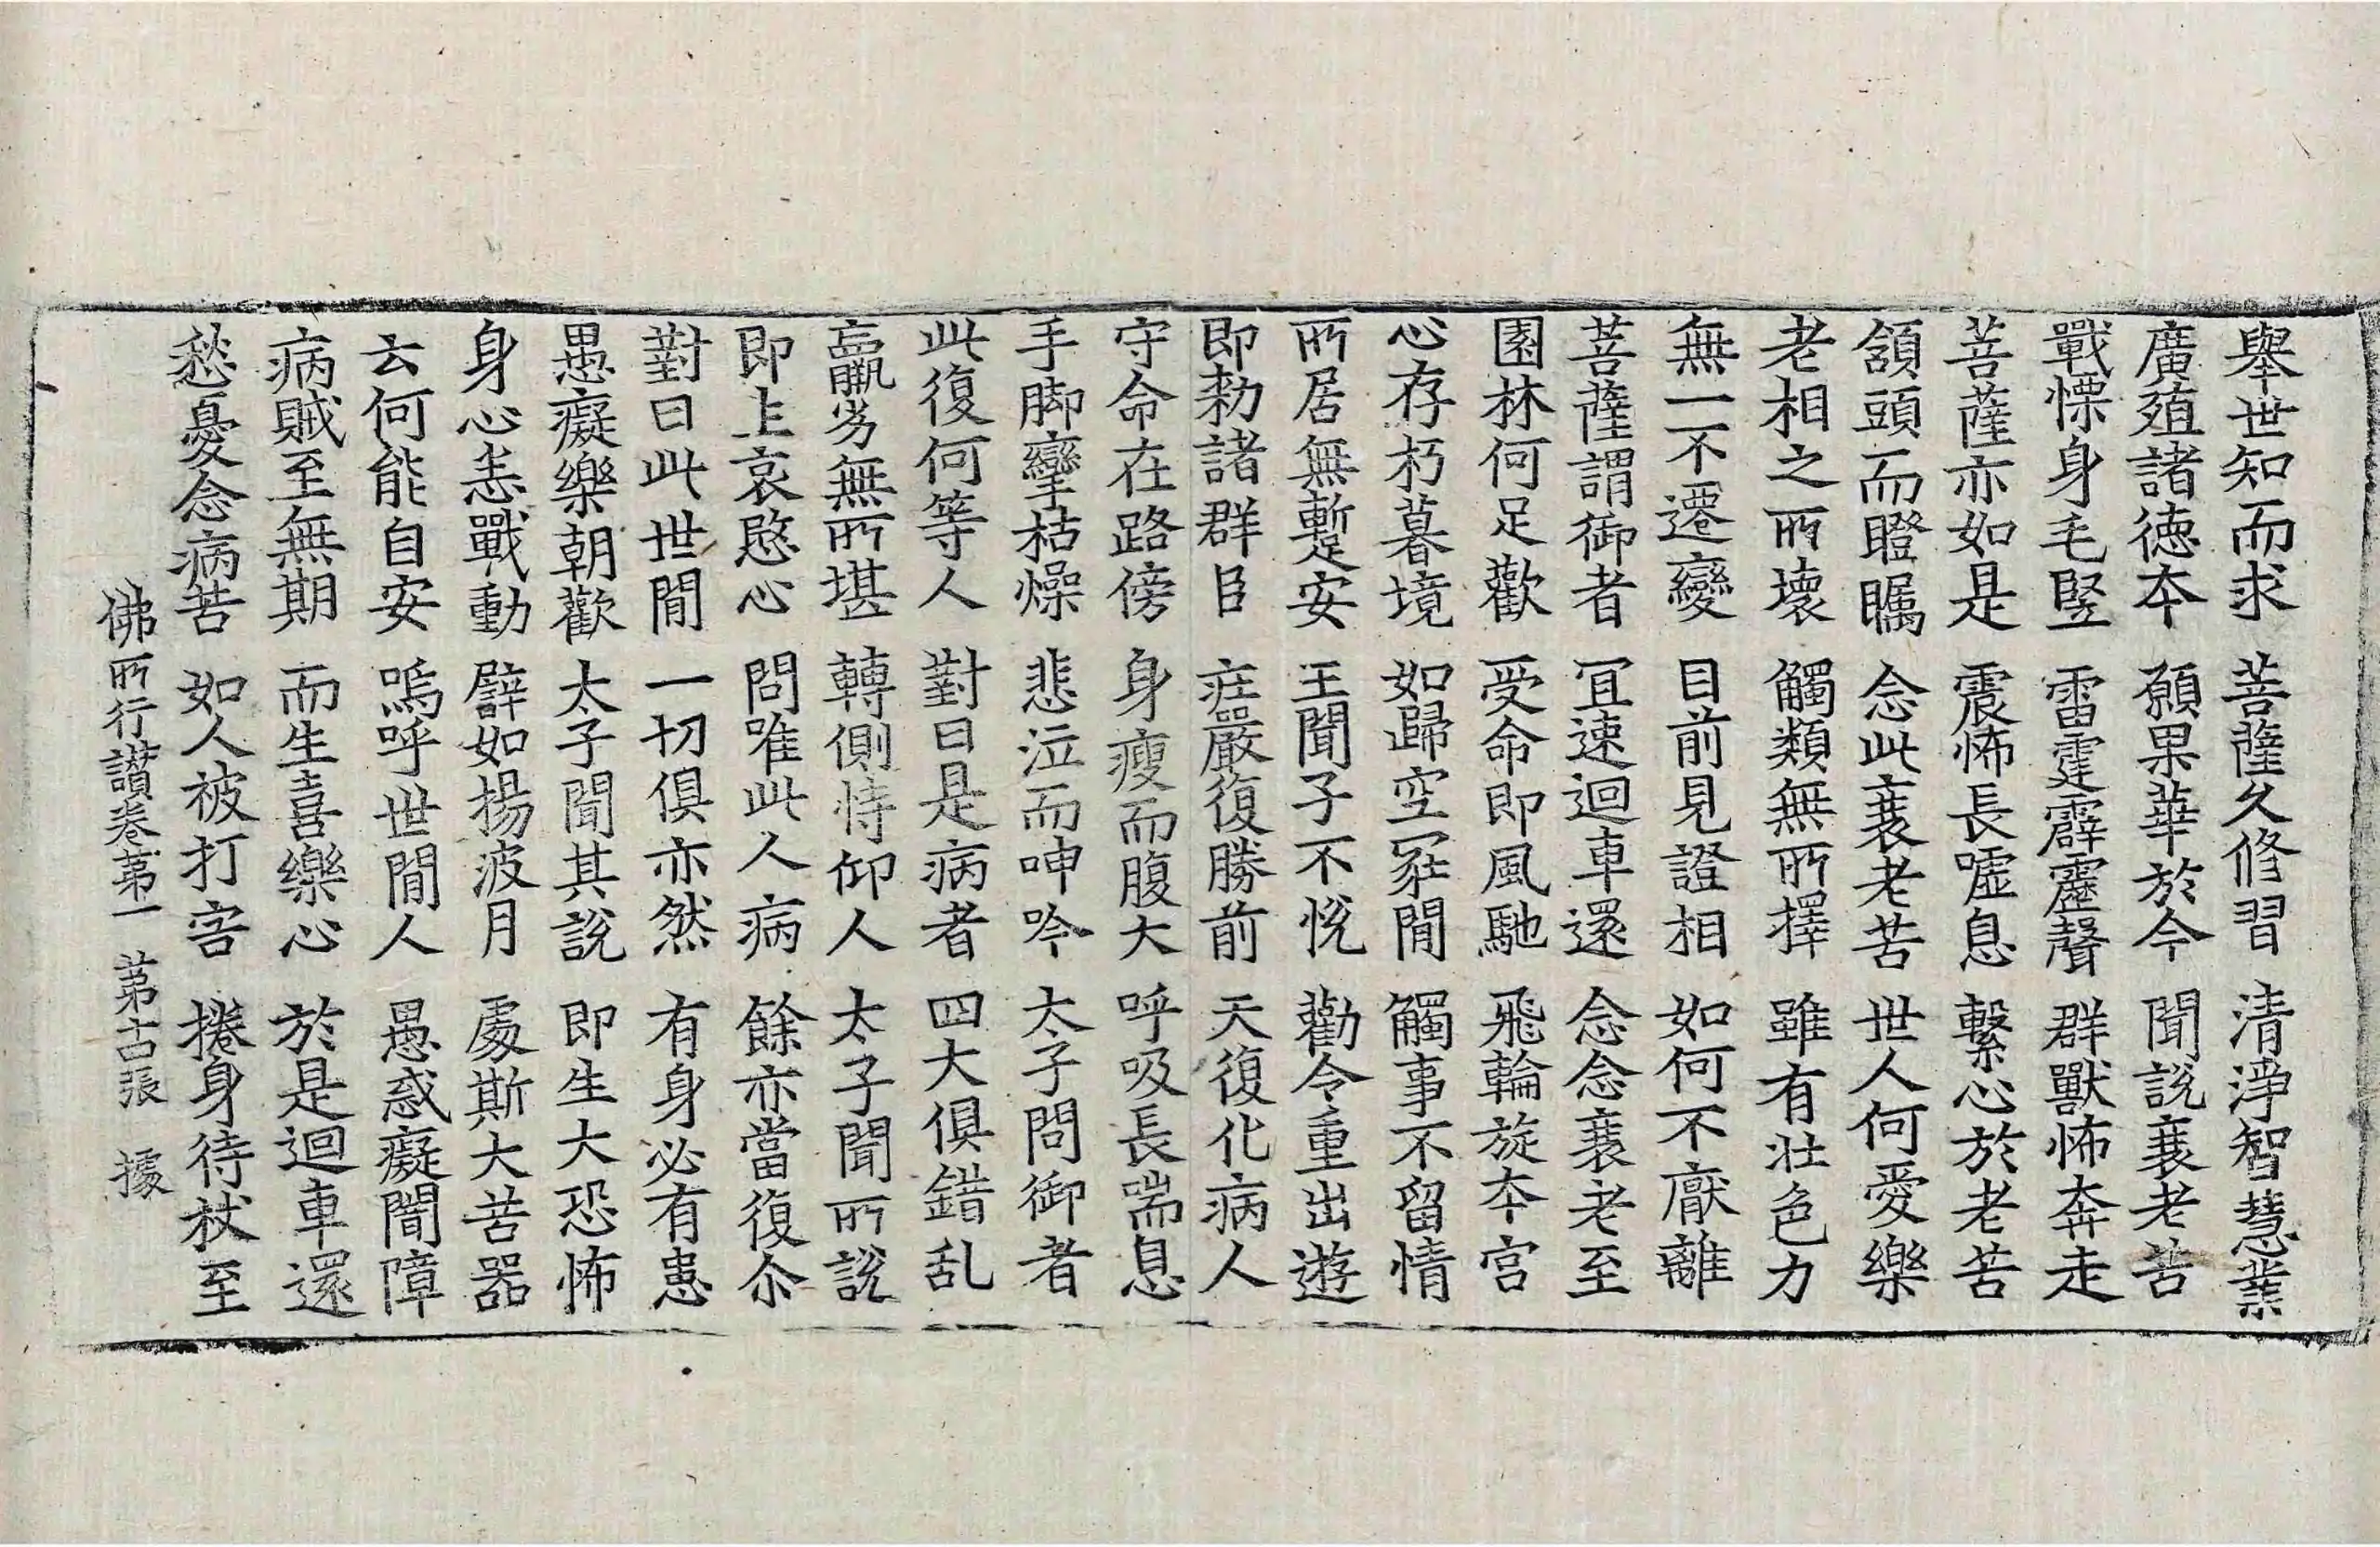 舉世知而求 菩薩久修習 清淨智慧業
廣殖諸德本 願果華於今 聞說衰老苦
戰慄身毛竪 雷霆霹靂聲 群獸怖奔走
菩薩亦如是 震怖長嘘息 繫心於老苦
頷頭而瞪矚 念此衰老苦 世人何愛樂
老相之所壞 觸類無所擇 雖有壯色力
無一不遷變 目前見證相 如何不厭離
菩薩謂御者 冝速迴車還 念念衰老至
園林何足歡 受命即風馳 飛輪旋本宮
心存朽暮境 如歸空冢閒 觸事不留情
所居無暫安 王聞子不悅 勸令重出遊
即勑諸群臣 莊嚴復勝前 天復化病人
守命在路傍 身瘦而腹大 呼吸長喘息
手脚攣枯燥 悲泣而呻吟 太子問御者
此復何等人 對曰是病者 四大俱錯乱
羸劣無所堪 轉側恃仰人 太子聞所說
即上哀愍心 問唯此人病 餘亦當復尒
對曰此世閒 一切俱亦然 有身必有患
愚癡樂朝歡 太子聞其說 即生大恐怖
身心悉戰動 譬如揚波月 處斯大苦器
云何能自安 嗚呼世閒人 愚惑癡闇障
病賊至無期 而生喜樂心 於是迴車還
愁憂念病苦 如人被打害 捲身待杖至
佛所行讚卷第一 第古張 據